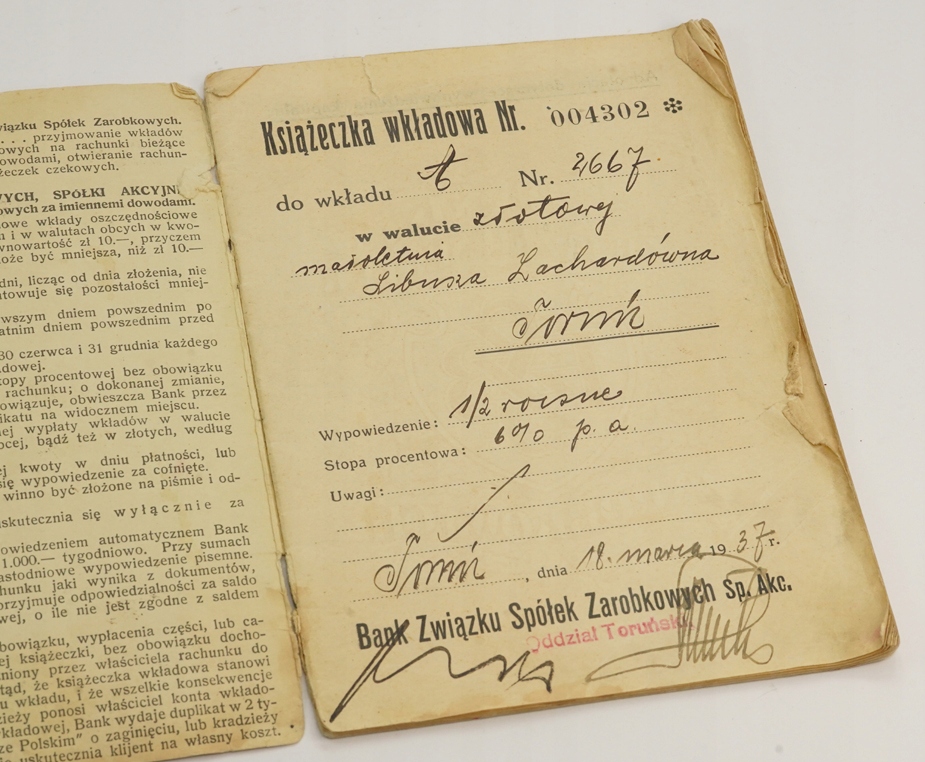 wiązku Spółek Zarobkowych.
. . . . przyjmowanie wkładów
owych na rachunki bieżące
owodami, otwieranie rachun-
żeczek czekowych.
WYCH, SPÓŁKI AKCYJN
owych za imiennemi dowodami.
owe wkłady oszczędnościowe
h i w walutach obcych w kwo-
wnowartość zł 10.—, przyczem
oże być mniejsza, niż zł 10.—
dni, licząc od dnia złożenia, nie
ntowuje się pozostałości mniej-
wszym dniem powszednim po
atnim dniem powszednim przed
30 czerwca i 31 grudnia każdego
adowej.
opy procentowej bez obowiązku
rachunku; o dokonanej zmianie,
owiązuje, obwieszcza Bank przez
ikatu na widocznem miejscu.
nej wypłaty wkładów w walucie
ocej, bądź też w złotych, według
ej kwoty w dniu płatności, lub
się wypowiedzenie za cofnięte.
winno być złożone na piśmie i od-
uskutecznia się wyłącznie za
powiedzeniem automatycznem Bank
1.000.— tygodniowo. Przy sumach
astodniowe wypowiedzenie pisemne.
chunku jaki wynika z dokumentów,
przyjmuje odpowiedzialności za saldo
wej, o ile nie jest zgodne z saldem
obowiązku, wypłacenia części, lub ca-
ej książeczki, bez obowiązku docho-
niony przez właściciela rachunku do
tąd, że książeczka wkładowa stanowi
u wkładu, i że wszelkie konsekwencje
zieży ponosi właściciel konta wkłado-
kładowej, Bank wydaje duplikat w 2 ty-
ze Polskim" o zaginięciu, lub kradzieży
uskutecznia klijent na własny koszt.
Książeczka wkładowa Nr. 004302
do wkładu Nr. 2667
w walucie złotowej
małoletnia
Libusza Zachardówna
Toruń
Wypowiedzenie: 1/2 roczne
Stopa procentowa: 6% p. a.
Uwagi:
Toruń, dnia 18. marca 1937 r.
Bank Związku Spółek Zarobkowych Sp. Akc.
Oddział Toruński